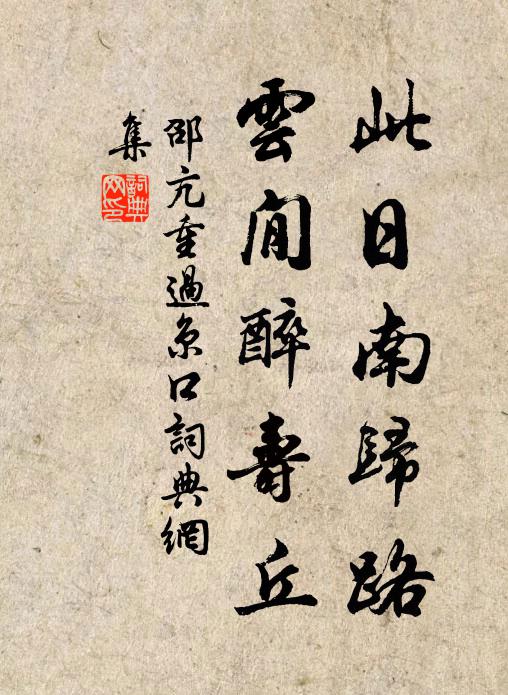 此日南歸路
雲間醉壽丘
邵亢重過京口詞典網
集
詞典
网印